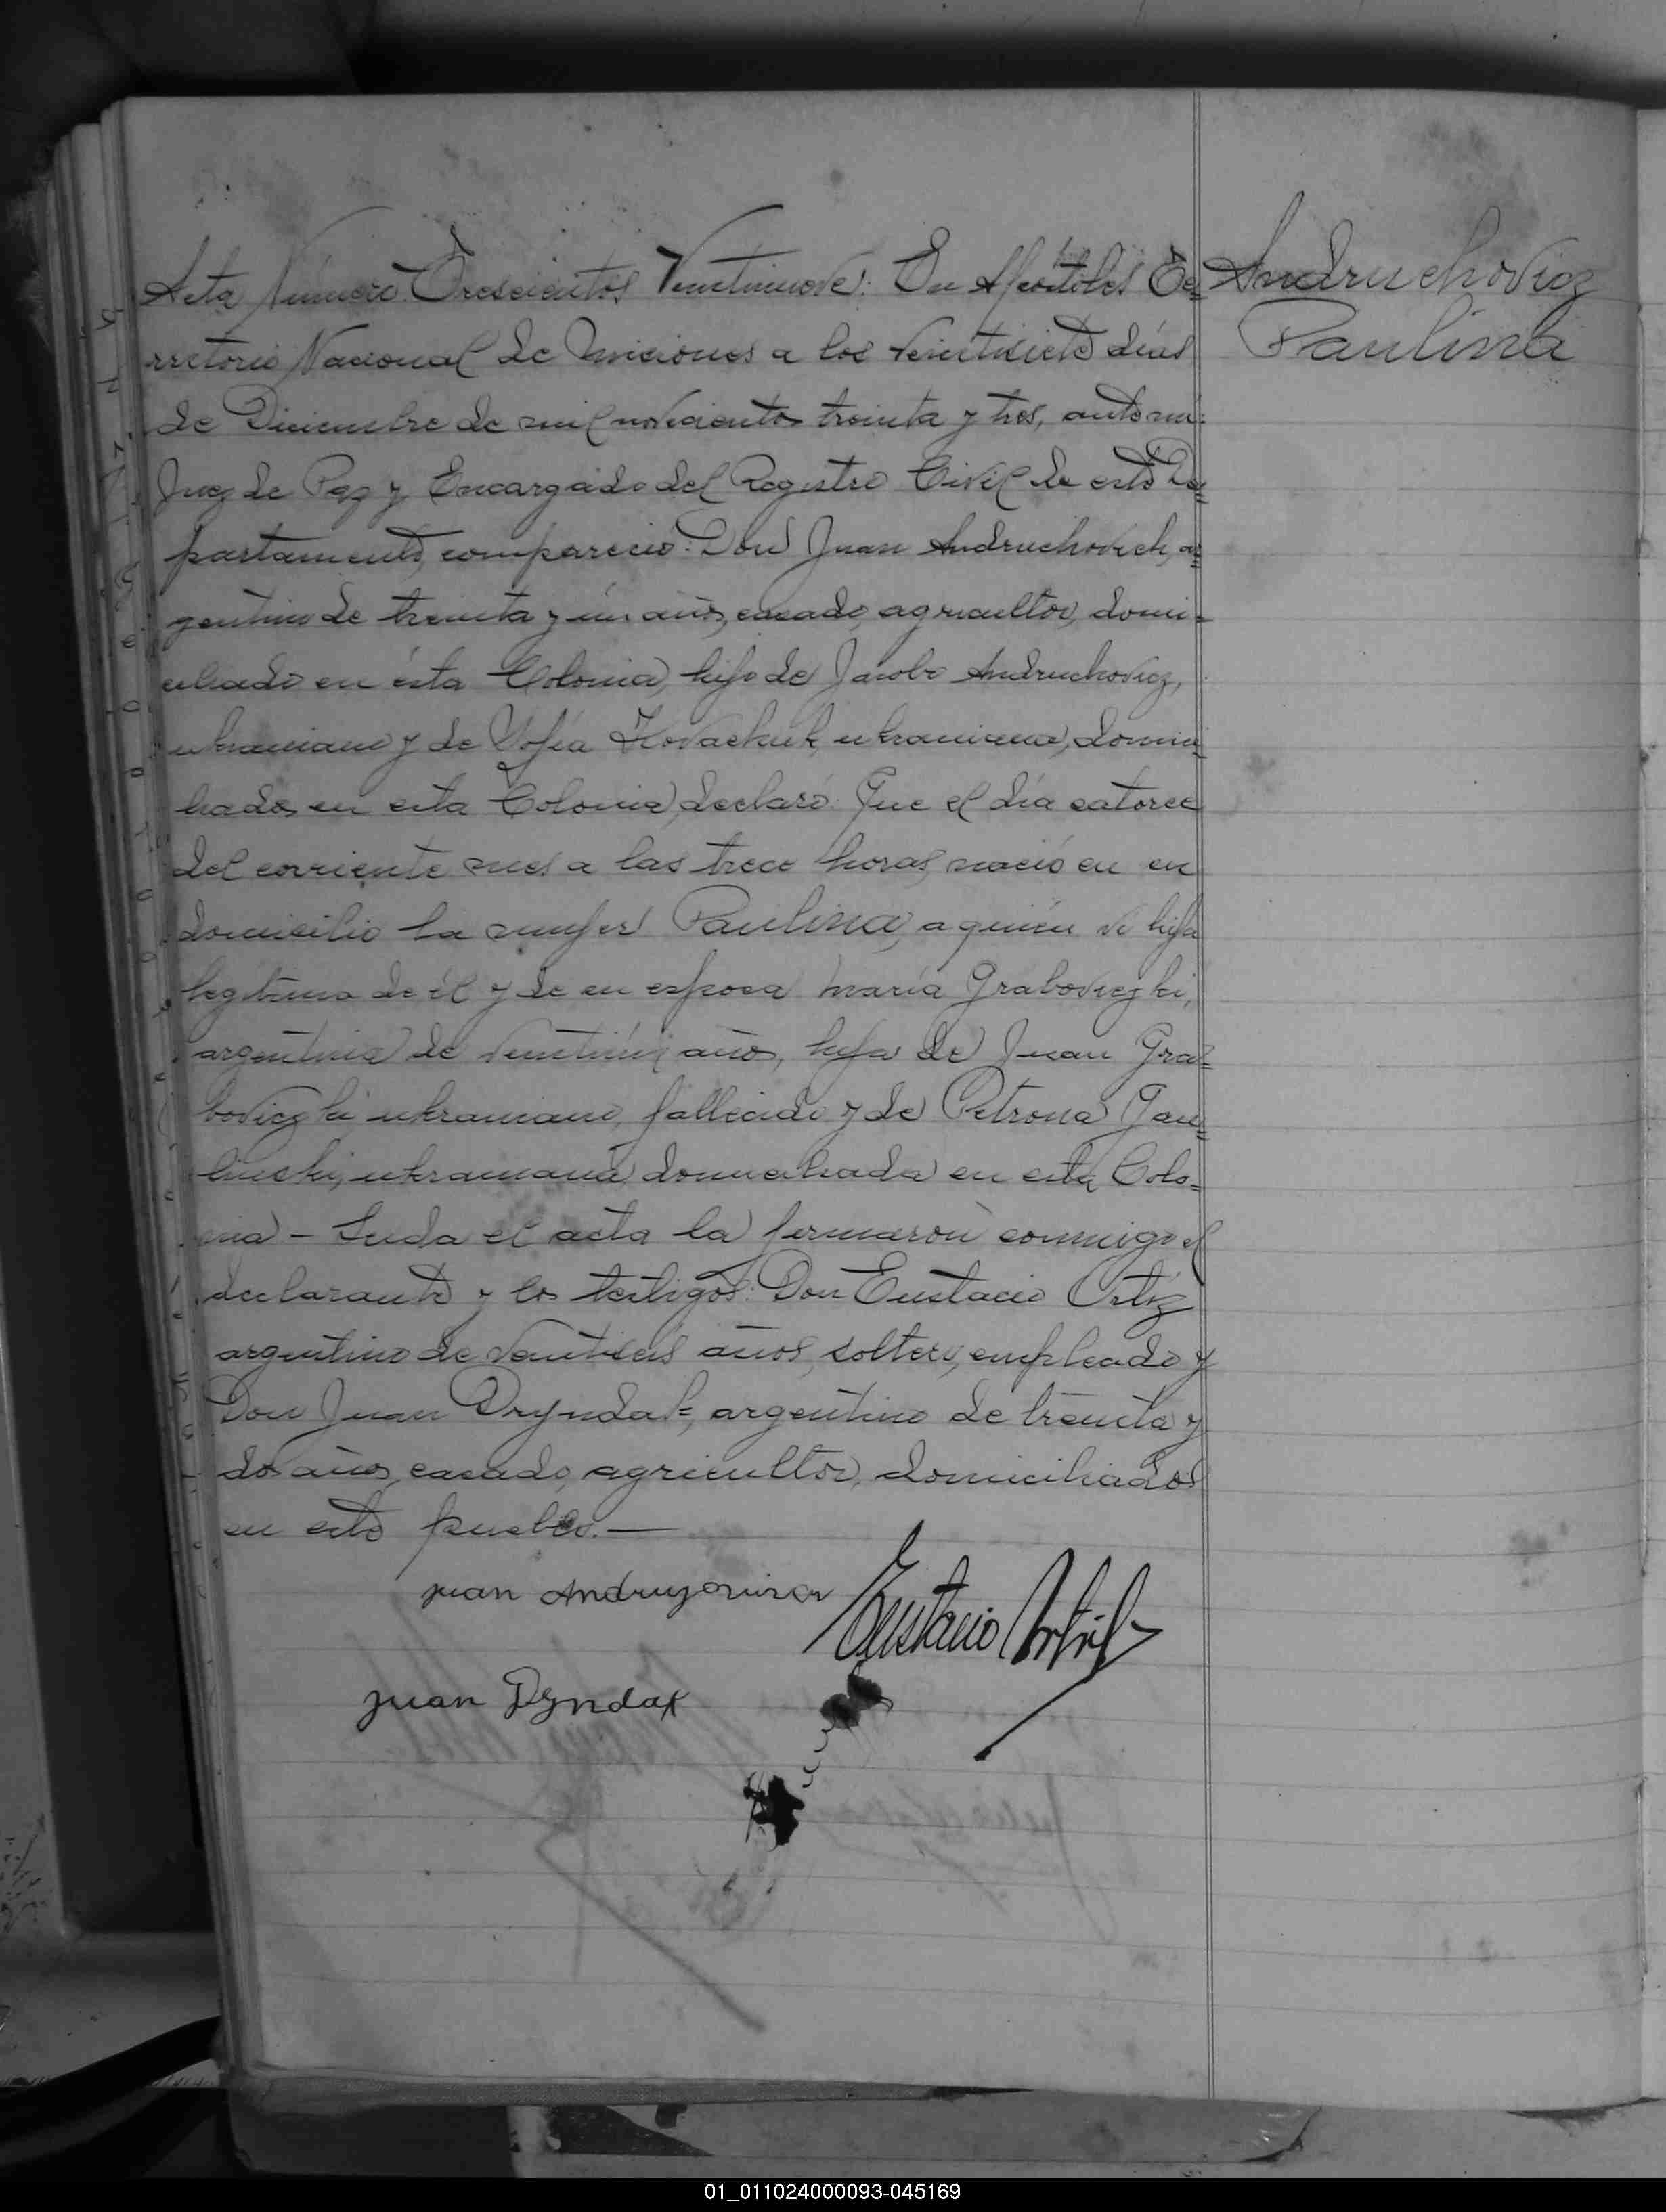 Acta Número Trescientos Veintinueve: En Apóstoles Te=
rritorio Nacional de Misiones a los veintisiete días
de Diciembre de mil novecientos treinta y tres, ante mi:
Juez de Paz y Encargado del Registro Civil de este De=
partamento, compareció: Don Juan Andruchovich, ar=
gentino de treinta y un años, casado, agricultor, domi=
ciliado en ésta Colonia, hijo de Jacobo Andruchovicz,
ukraniano y de Sofía Kovachuk, ukraniana, domici
liados en esta Colonia, declaró: Que el día catorce
del corriente mes a las trece horas, nació en su
domicilio la mujer Paulina, a quién vi hija
legítima de él y de su esposa María Graboviezki,
argentina de veintiún años, hija de Juan Gra=
boviezki, ukraniano, fallecido y de Petrona
ukraniana domiciliada en esta Colo=
nia - Leida el acta la firmaron conmigo el
declarante y los testigos: Don Eustacio Ortíz
argentino de veintiseis años, soltero, empleado y
Don Juan Dryndak=, argentino de treinta y
dos años, casado, agricultor, domiciliados
en este pueblo.—
Juan
Eustacio Ortiz
Juan Dyndak
Andruchovicz
Paulina
01_011024000093-045169